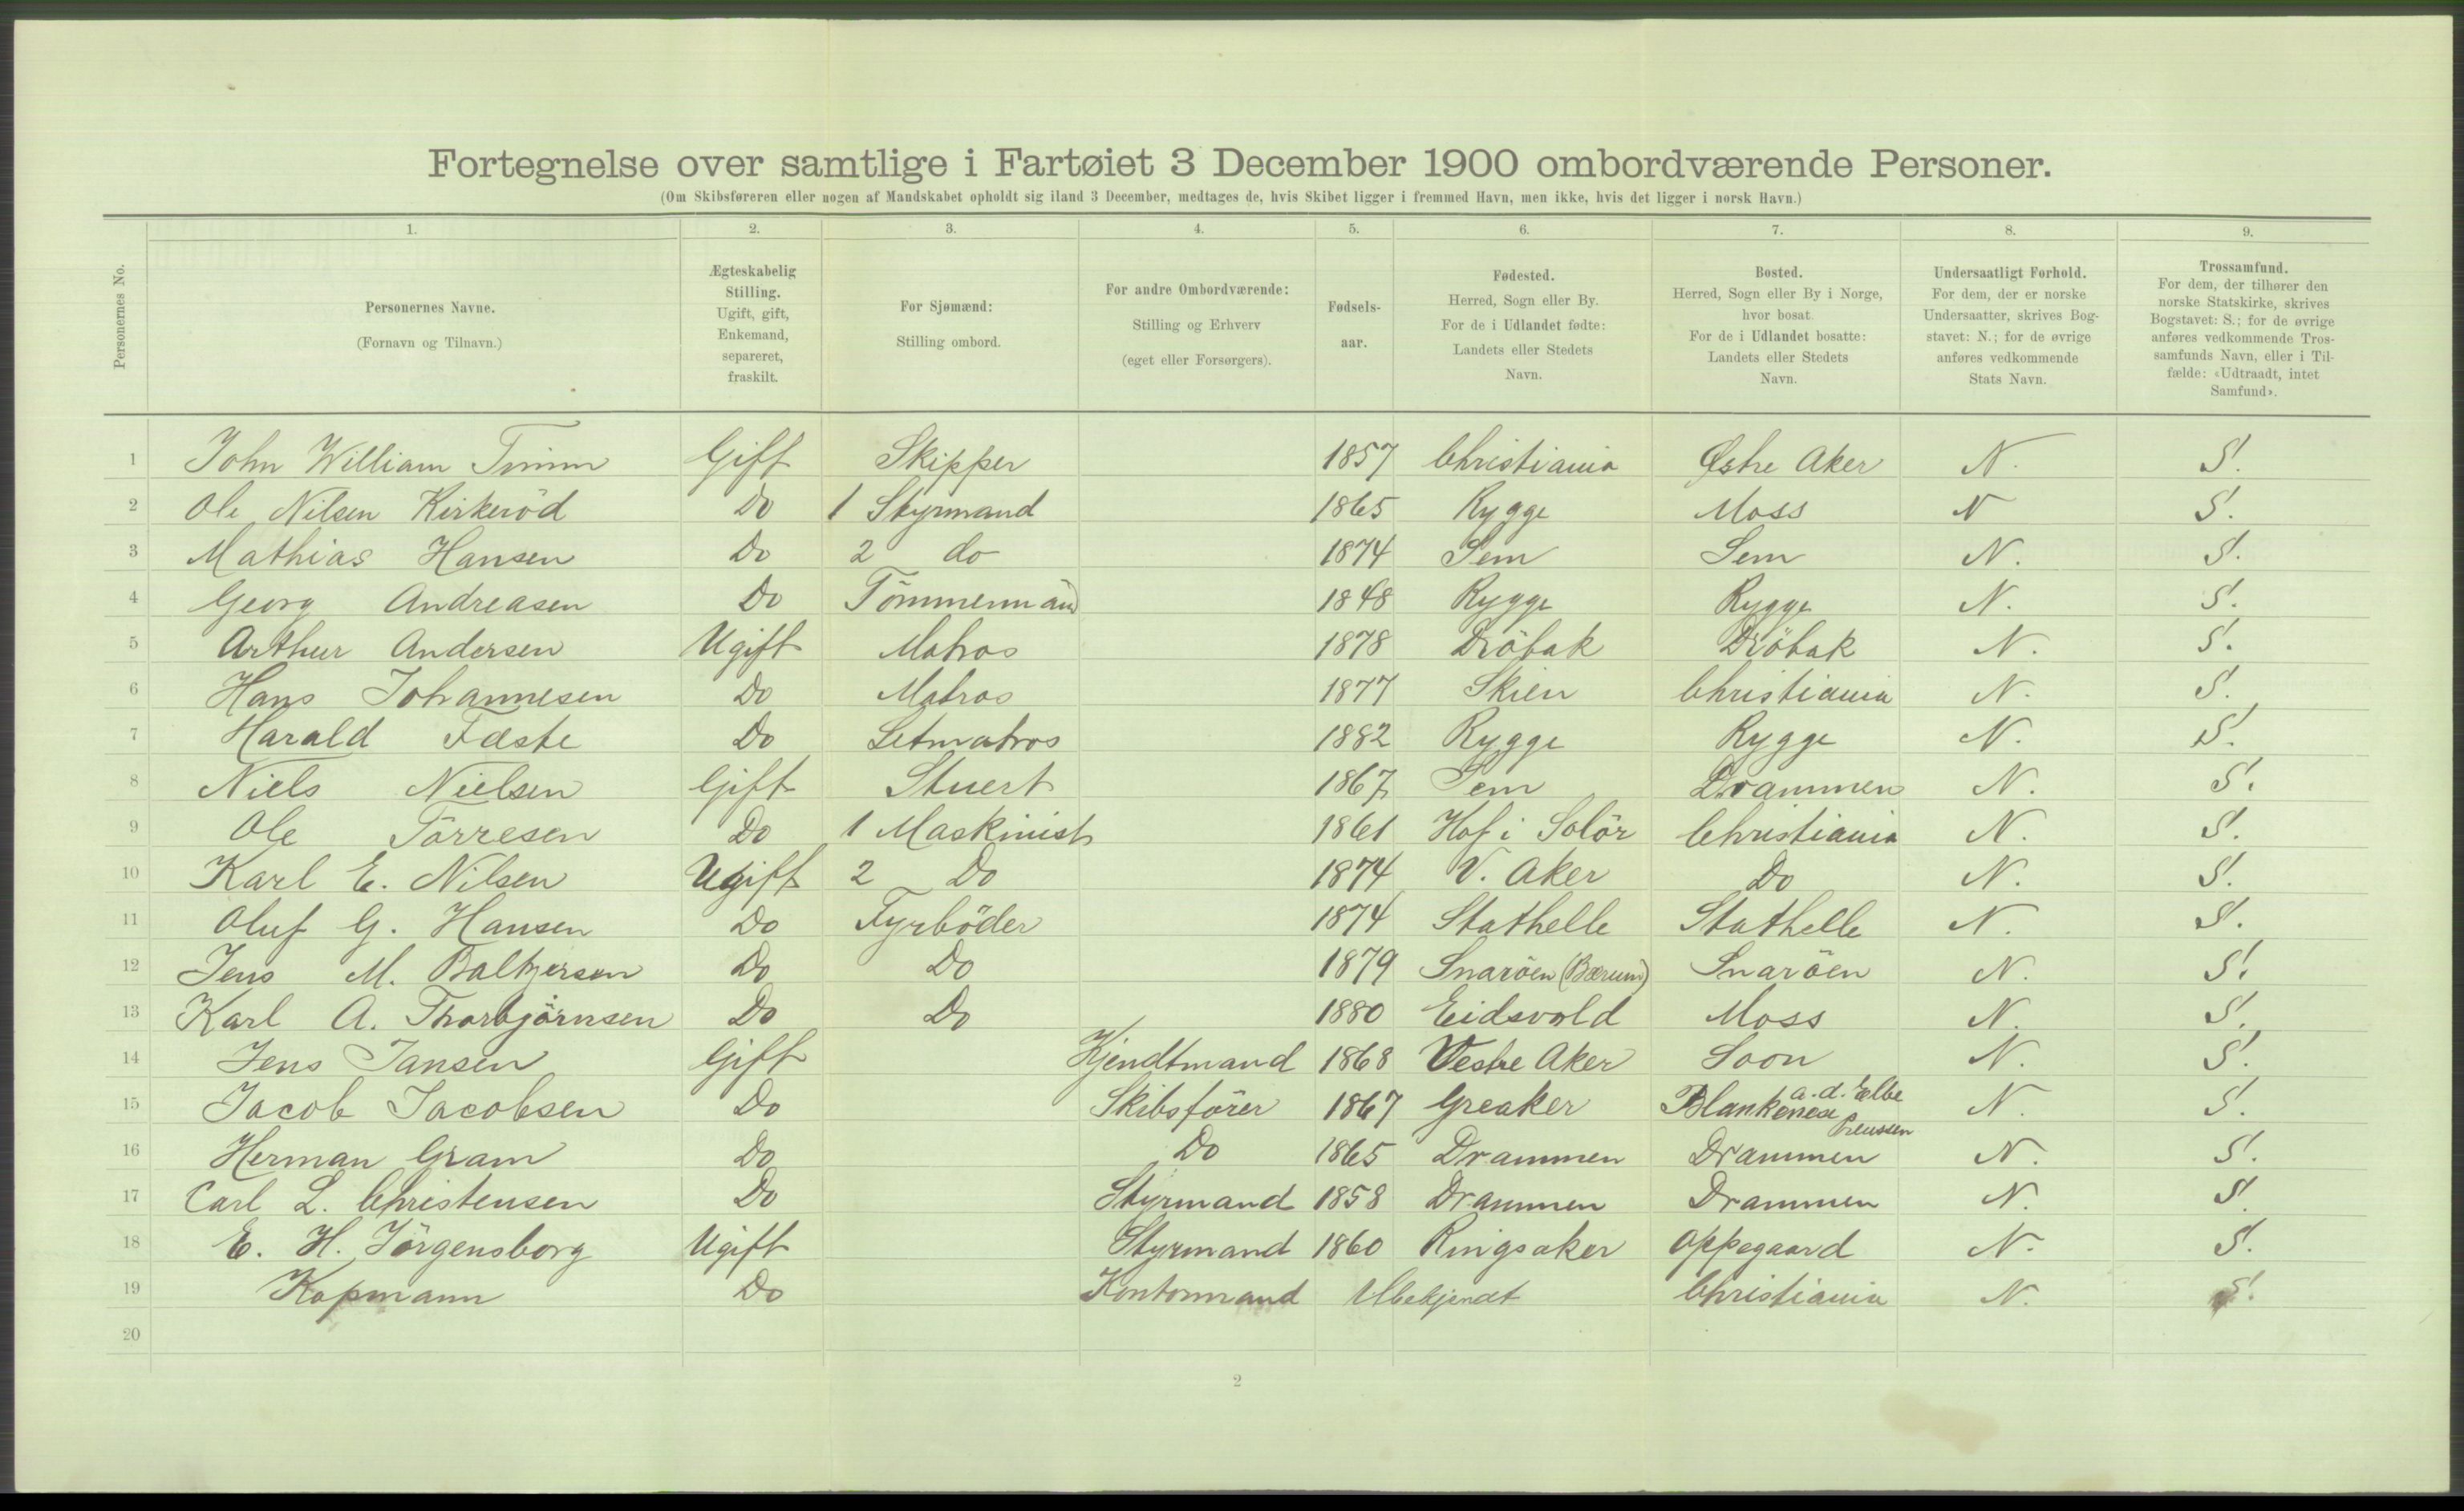 Fortegnelse over samtlige i Fartøiet 3 December 1900 ombordværende Personer.
(Om Skibsføreren eller nogen af Mandskabet opholdt sig iland 3 December, medtages de, hvis Skibet ligger i fremmed Havn, men ikke, hvis det ligger i norsk Havn.)
Personernes No.
1. 2. 3. 4. 5. 6. 7. 8. 9.
Personernes Navne.
(Fornavn og Tilnavn.)
Ægteskabelig
Stilling.
Ugift, gift,
Enkemand,
separeret,
fraskilt.
For Sjømænd:
Stilling ombord.
For andre Ombordværende:
Stilling og Erhverv
(eget eller Forsørgers).
Fødsels-
aar.
Fødested.
Herred, Sogn eller By.
For de i Udlandet fødte:
Landets eller Stedets
Navn.
Bosted.
Herred, Sogn eller By i Norge,
hvor bosat.
For de i Udlandet bosatte:
Landets eller Stedets
Navn.
Undersaatligt Forhold.
For dem, der er norske
Undersaatter, skrives Bog-
stavet: N.; for de øvrige
anføres vedkommende
Stats Navn.
Trossamfund.
For dem, der tilhører den
norske Statskirke, skrives
Bogstavet: S.; for de øvrige
anføres vedkommende Tros-
samfunds Navn, eller i Til-
fælde: «Udtraadt, intet
Samfund».
1 John William Timm Gift Skipper 1857 Christiania Østre Aker N. S.
2 Ole Nilsen Kirkeröd Do 1 Styrmand 1865 Rygge Moss N S.
3 Mathias Hansen Do 2 do 1874 Sem Sem N. S.
4 Georg Andreasen Do Tömmermand 1848 Rygge Rygge N. S.
5 Arthur Andersen Ugift Matros 1878 Dröbak Dröbak N. S.
6 Hans Johannesen Do Matros 1877 Skien Christiania N. S.
7 Harald Fæste Do Letmatros 1882 Rygge Rygge N. S.
8 Niels Nielsen Gift Stuert 1867 Sem Drammen N. S.
9 Ole Törresen Do 1 Maskinist 1861 Hof i Solör Christiania N. S.
10 Karl E. Nilsen Ugift 2 Do 1874 V. Aker Do N. S.
11 Oluf G. Hansen Do Fyrböder 1874 Stathelle Stathelle N. S.
12 Jens M. Baltzersen Do Do 1879 Snaröen (Bærum) Snaröen N. S.
13 Karl A. Thorbjörnsen Do Do 1880 Eidsvold Moss N. S.
14 Jens Jansen Gift Kjendtmand 1868 Vestre Aker Soon N. S.
15 Jacob Jacobsen Do Skibsförer 1867 Greaker Blankenese a.d. Elbe Preussen N. S.
16 Herman Gram Do Do 1865 Drammen Drammen N. S.
17 Carl L. Christensen Do Styrmand 1858 Drammen Drammen N. S.
18 E. H. Jörgensborg Ugift Styrmand 1860 Ringsaker Oppegaard N. S.
19 Kopmann Do Kontormand Ubekjendt Christiania N. S.
20
2